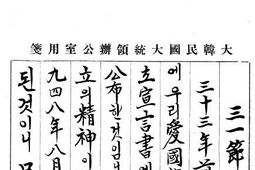 大韓民國大統領辦公室用箋
三一節
三十三年前
에우리愛國
立宣言書에
公布한것임니
立의精神이
九四八年八月
된것이니